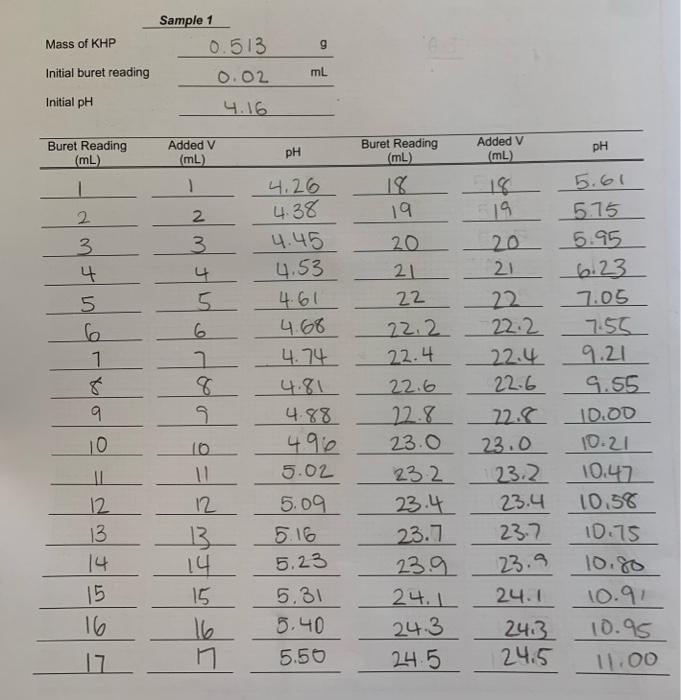 Sample 1
Mass of KHP 0.513 g
Initial buret reading 0.02 mL
Initial pH 4.16
Buret Reading (mL) Added V (mL) pH Buret Reading (mL) Added V (mL) pH
1 1 4.26 18 18 5.61
2 2 4.38 19 19 5.75
3 3 4.45 20 20 5.95
4 4 4.53 21 21 6.23
5 5 4.61 22 22 7.05
6 6 4.68 22.2 22.2 7.55
7 7 4.74 22.4 22.4 9.21
8 8 4.81 22.6 22.6 9.55
9 9 4.88 22.8 22.8 10.00
10 10 4.96 23.0 23.0 10.21
11 11 5.02 23.2 23.2 10.47
12 12 5.09 23.4 23.4 10.58
13 13 5.16 23.7 23.7 10.75
14 14 5.23 23.9 23.9 10.80
15 15 5.31 24.1 24.1 10.91
16 16 5.40 24.3 24.3 10.95
17 17 5.50 24.5 24.5 11.00